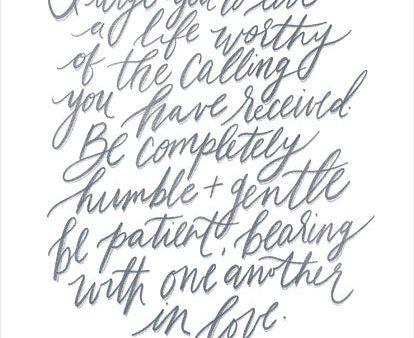 I urge you to live
a life worthy
of the calling
you have received.
Be completely
humble + gentle
be patient, bearing
with one another
in love.